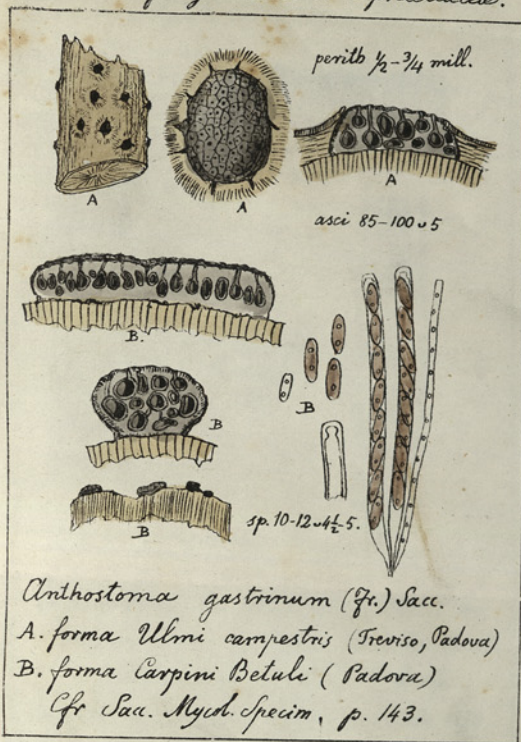 perith ½-¾ mill.
A
A
A
asci 85-100 ᴗ 5
B.
B
B
B
sp. 10-12 ᴗ 4½-5.
Anthostoma gastrinum (Fr.) Sacc.
A. forma Ulmi campestris (Treviso, Padova)
B. forma Carpini Betuli (Padova)
Cfr Sacc. Mycol. Specim. p. 143.